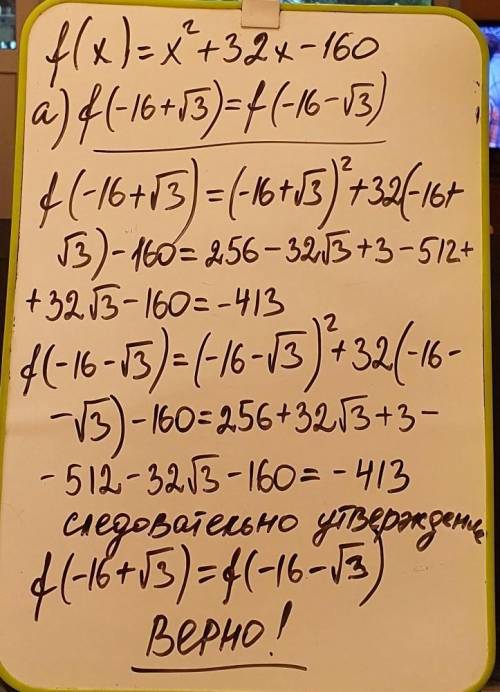 f(x)=x²+32x-160
а) f(-16+√3)=f(-16-√3)
f(-16+√3)=(-16+√3)²+32(-16+
√3)-160=256-32√3+3-512+
+32√3-160=-413
f(-16-√3)=(-16-√3)²+32(-16-
-√3)-160=256+32√3+3-
-512-32√3-160=-413
следовательно утверждение
f(-16+√3)=f(-16-√3)
Верно!